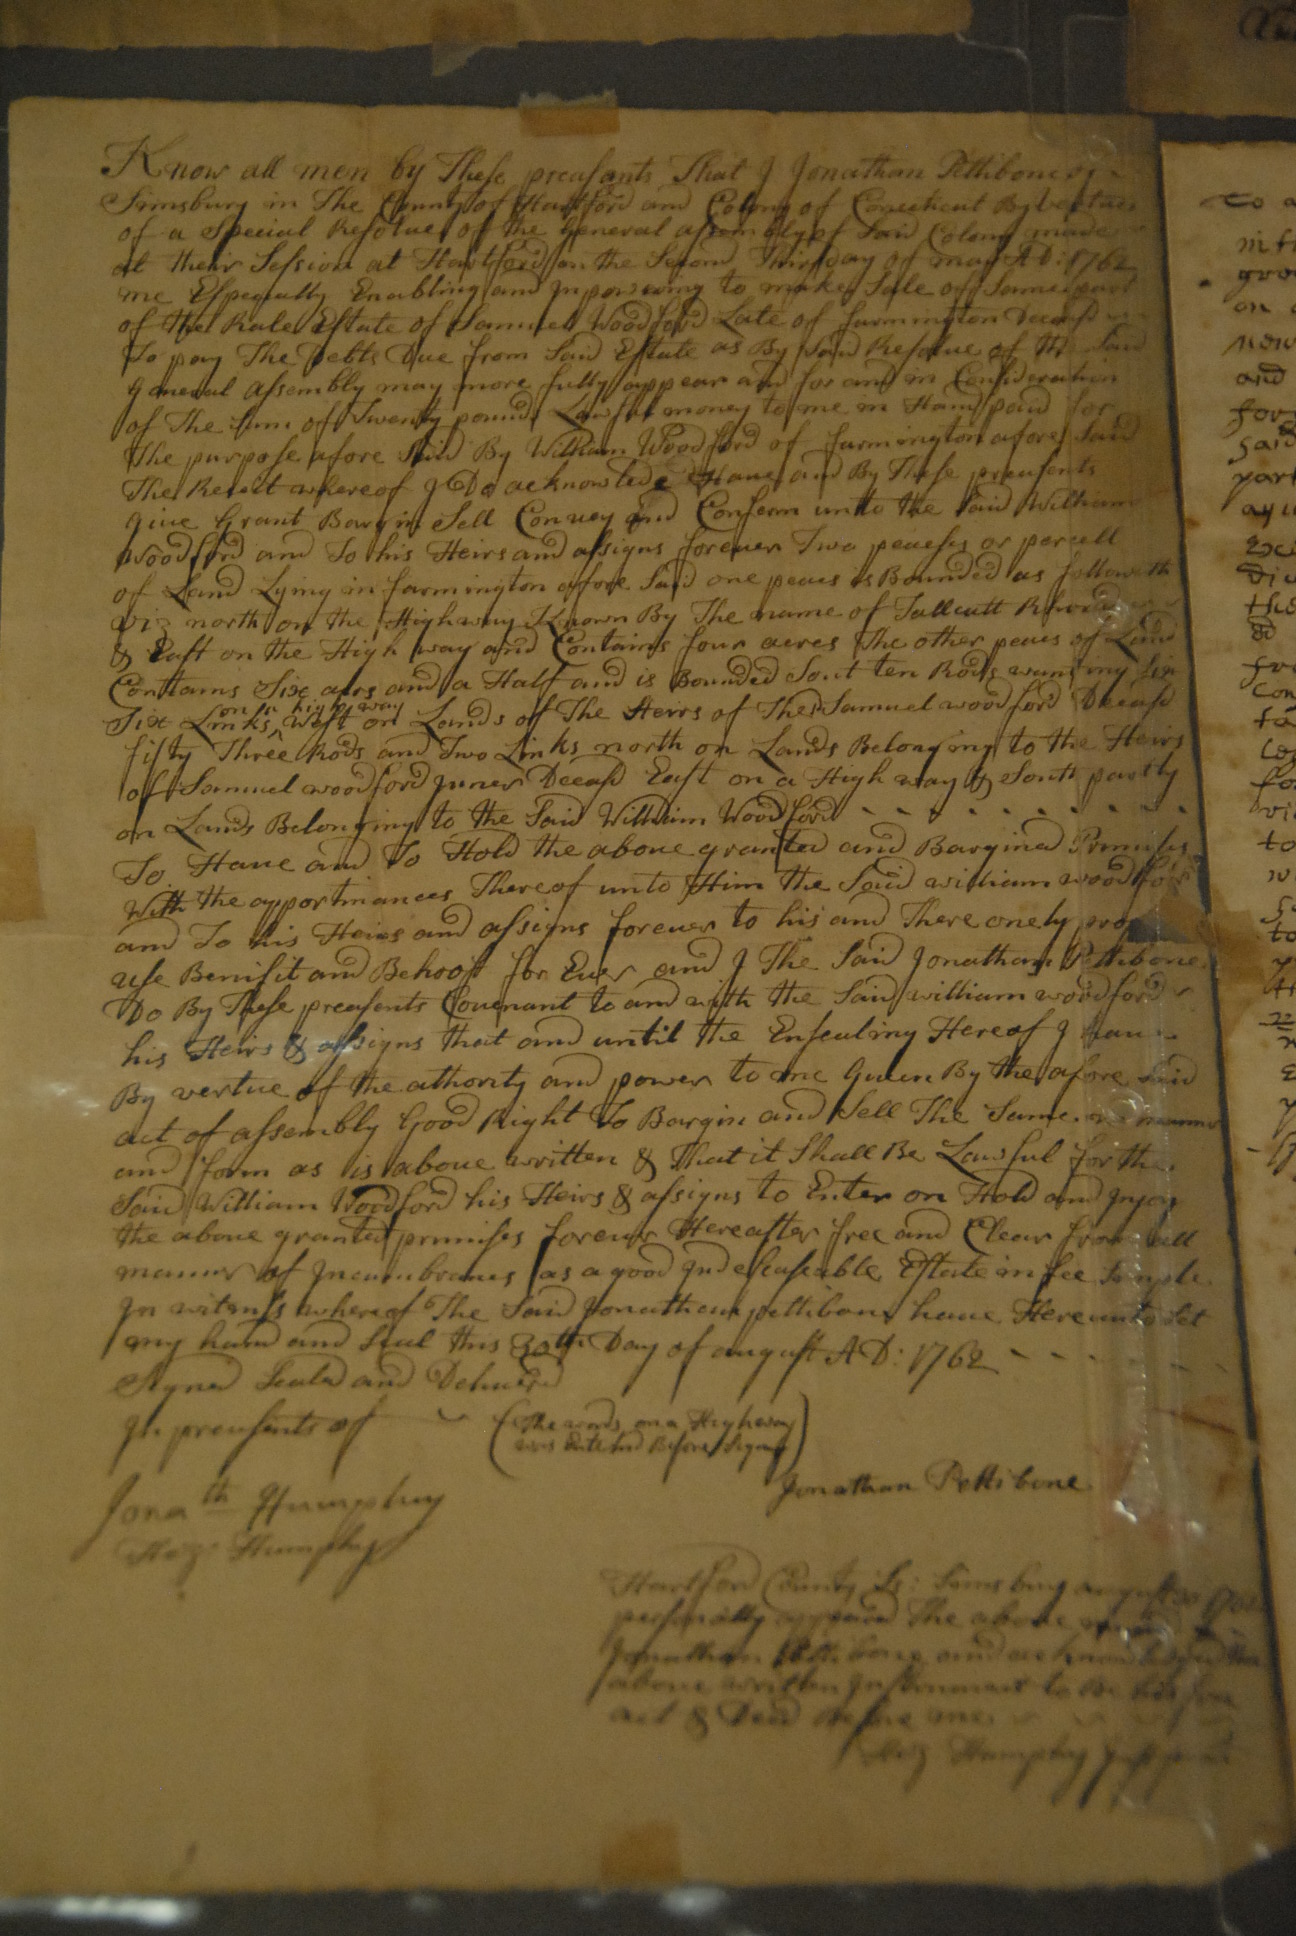 Know all men by These preasents That I Jonathan Pettibone of
Simsbury in The County of Hartford and Colony of Conecticut By vertue
of a Special Resolue of the General assembly of Said Colony made
at their Session at Hartford on the Second Thirsday of may AD: 1762
me Espegially Enabling and Inpowering to make Sale of Some part
of the Rale Estate of Samuel Woodford Late of farmington Deceasd
To pay The Debts Due from Said Estate as By Said Resolue of the Said
General assembly may more fully appear and for and in Consideration
of The Sum of Twenty pounds Lawful money to me in Hand paid for
The purpose afore Said By William Woodford of farmington afore Said
The Receit whereof I Do acknowledge Haue and By These preasents
giue Grant Bargin Sell Conuey and Conferm unto the Said William
Woodford and To his Heirs and assigns foreuer Two peaeses or parcell
of Land Lying in farmington afore Said one peaes is Bounded as followeth
viz north on the Highway Known By The name of Tallcutt
& East on the High way and Contains four acres The other peaes of Land
Conttains Six acrs and a Half and is Bounded Sout ten Rods wanting Six
on a high way
Six Links, West on Lands of The Heirs of The Samuel woodford Deceasd
fifty Three Rods and Two Links north on Lands Belonging to the Heirs
of Samuel woodford juner Deceasd East on a High way & South partly
on Lands Belonging to the Said William Woodford
To Haue and To Hold the aboue granted and Bargined Premises
With the apportinances Thereof unto Him the Said william woodford
and To his Heirs and assigns foreuer to his and There onely
use Benifit and Behoof for Euer and I The Said Jonathan Pettibone
Do By These preasents Couenant to and with the Said william woodford
his Heirs & assigns that and until the Ensealing Hereof I haue
By vertue of the authority and power to me Giuen By the afore Said
act of assembly Good Right To Bargin and Sell The Same in manner
and form as is aboue written & That it Shall Be Lawful for the
Said William Woodford his Heirs & assigns to Enter on Hold and Injoy
the aboue granted premises foreuer Hereafter free and Clear from all
manner of Incumbrances as a good Indefeaseable Estate in fee Simple
In witness whereof The Said Jonathan pettibone haue Hereunto Set
my hand and Seal this 30th Day of august AD: 1762
Signed Seald and Deliuerd
In preasents of
(The words on a Highway
was Enterlind Before Signing)
Jonathan Pettibone
Jonath Humphry
Hez Humphry
Hartford County Ss: Simsbury august 30 1762
personally appeard The aboue named
Jonathan Pettibone and acknowledged the
aboue written Instrument to Be his free
act & Deed Before me
Hez Humphry Just peace